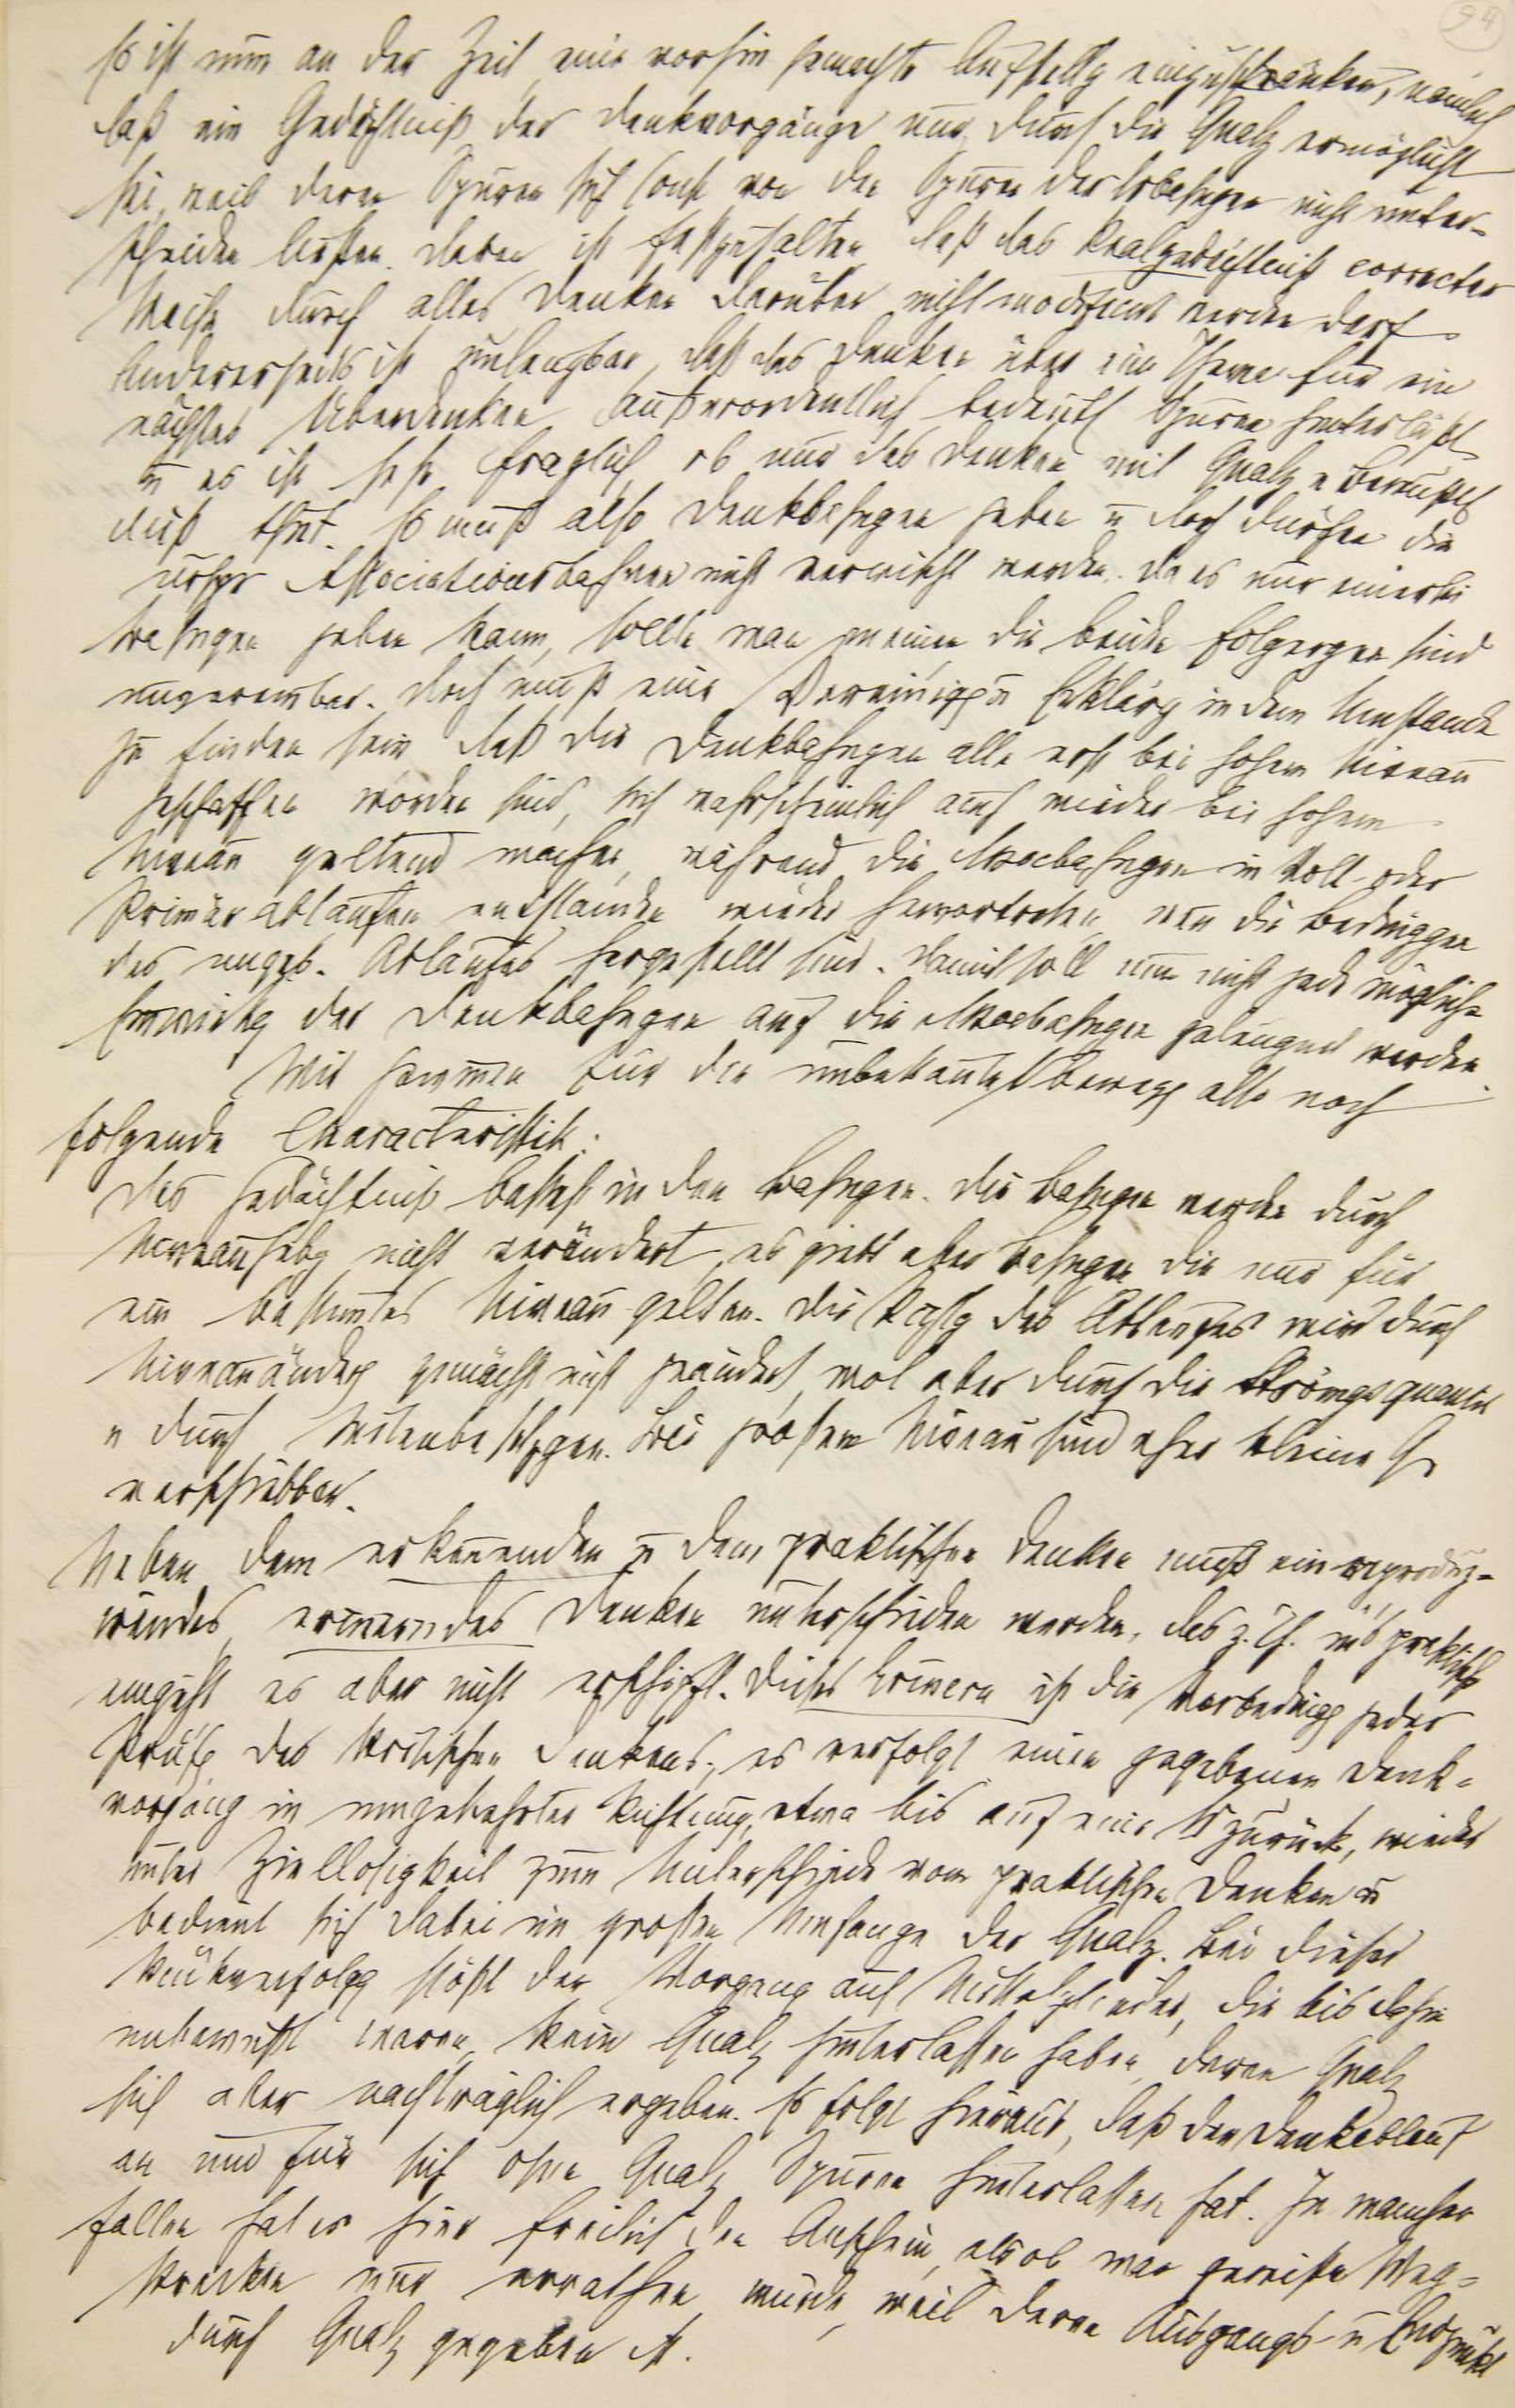 94
Es ist nun an der Zeit, eine vorhin gemachte Aufstellg einzuschränken, nämlich
daß ein Gedächtniß der Denkvorgänge nur durch die Qualz ermöglicht
sei, weil deren Spuren sich sonst von den Spuren der Wbahngen nicht unter-
scheiden ließen. Davon ist festzuhalten, daß das Realgedächtniß correcter
Weise durch alles Denken darüber nicht modificirt werden darf.
Andererseits ist unleugbar, daß das Denken über ein Thema für ein
nächstes Überdenken außerordentlich bedeuts Spuren hinterläßt,
u es ist sehr fraglich, ob nur das Denken mit Qualz u Bewußts
dieß thut. Es muß also Denkbahngen geben u doch dürfen die
ursprgl Associationsbahnen nicht verwischt werden. Da es nur einerlei
Bahngen geben kann, sollte man meinen, die beiden Folgergen sind
unvereinbar. Doch muß eine Vereinigg u Erklärg in dem Umstande
zu finden sein, daß die Denkbahngen alle erst bei hohem Niveau
geschaffen worden sind, sich wahrscheinlich auch wieder bei hohem
Niveau geltend machen, während die Assocbahngen in Voll- oder
Primärabläufen entstanden wieder hervortreten, wen die Bedinggen
des ungeb. Ablaufes hergestellt sind. Damit soll nun nicht jede mögliche
Einwirkg der Denkbahngen auf die Assocbahngen geleugnet werden.
Wir gewinnen für die unbekannte Bewegg also noch
folgende Characteristik:
Das Gedächtniß besteht in den Bahngen. Die Bahngen werden durch
Niveauhebg nicht verändert, es giebt aber Bahngen die nur für
ein bestimtes Niveau gelten. Die Richtg des Ablaufes wird durch
Niveauänderg zunächst nicht geändert, wol aber durch die Strömgsquantit
u durch Seitenbesetzgen. Bei großem Niveau sind eher kleine Q
verschiebbar.
Neben dem erkenenden u dem praktischen Denken muß ein reproduz-
irendes, erinnerndes Denken unterschieden werden, das z. Th. ins praktische
eingeht es aber nicht erschöpft. Dieses Erinern ist die Vorbedingg jeder
Prüfg des kritischen Denkens; es verfolgt einen gegebenen Denk-
vorgang in umgekehrter Richtung, etwa bis auf eine W zurück, wieder
unter Ziellosigkeit zum Unterschiede vom praktischen Denken u
bedient sich dabei im großen Umfange der Qualz. Bei dieser
Rückverfolgg stößt der Vorgang auf Mittelglieder, die bis dahin
unbewußt waren, keine Qualz hinterlassen haben, deren Qualz
sich aber nachträglich ergeben. Es folgt hieraus, daß der Denkablauf
an und für sich ohne Qualz Spuren hinterlassen hat. In manchen
Fällen hat es hier freilich den Anschein, als ob man gewisse Weg-
strecken nur errathen würde, weil deren Ausgangs- u Endpunkt
durch Qualz gegeben ist.